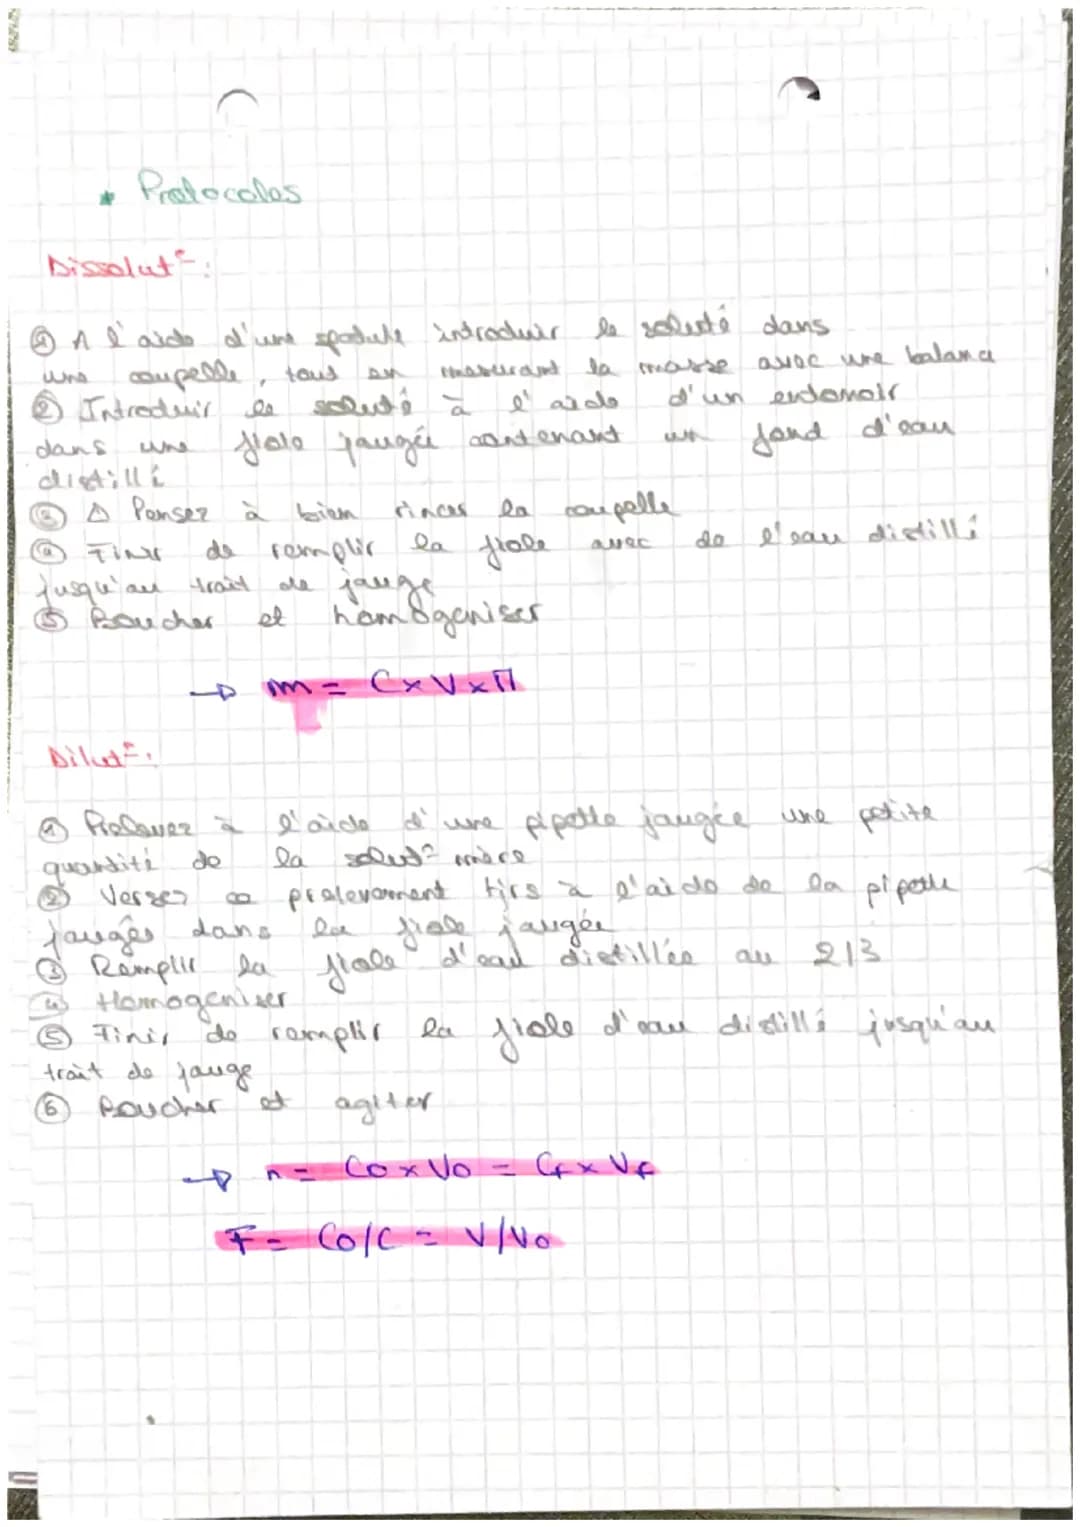 * Protocoles
Dissolut°:
① A l'aide d'une spatule introduir le soluté dans
une coupelle, tout en mesurant la masse avec une balance
② Introduir le soluté à l'aide d'un entonoir
dans une fiole jaugée contenant un fond d'eau
distillé
③ ⚠ Pensez à bien rincer la coupelle
④ Finir de remplir la fiole avec de l'eau distillé
jusqu'au trait de jauge
⑤ Boucher et homogeniser
→ m = C×V×M
Dilut°:
① Prelevez à l'aide d'une pipette jaugée une petite
quantité de la solut° mère
② Versez ce prelevement tjrs à l'aide de la pipette
jaugée dans la fiole jaugée
③ Remplir la fiole d'eau distillée au 2/3
④ Homogeniser
⑤ Finir de remplir la fiole d'eau distillé jusqu'au
trait de jauge
⑥ Boucher et agiter
→ n = C0 x V0 = Cf x Vf
F = C0/C = V/V0